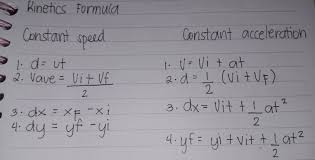 Kinetics Formula
Constant speed
1. d = vt
2. Vave = Vi + Vf / 2
3. dx = xF - xi
4. dy = yf - yi
Constant acceleration
1. V = Vi + at
2. d = 1/2 (Vi + VF)
3. dx = Vit + 1/2 at²
4. yf = yi + vit + 1/2 at²